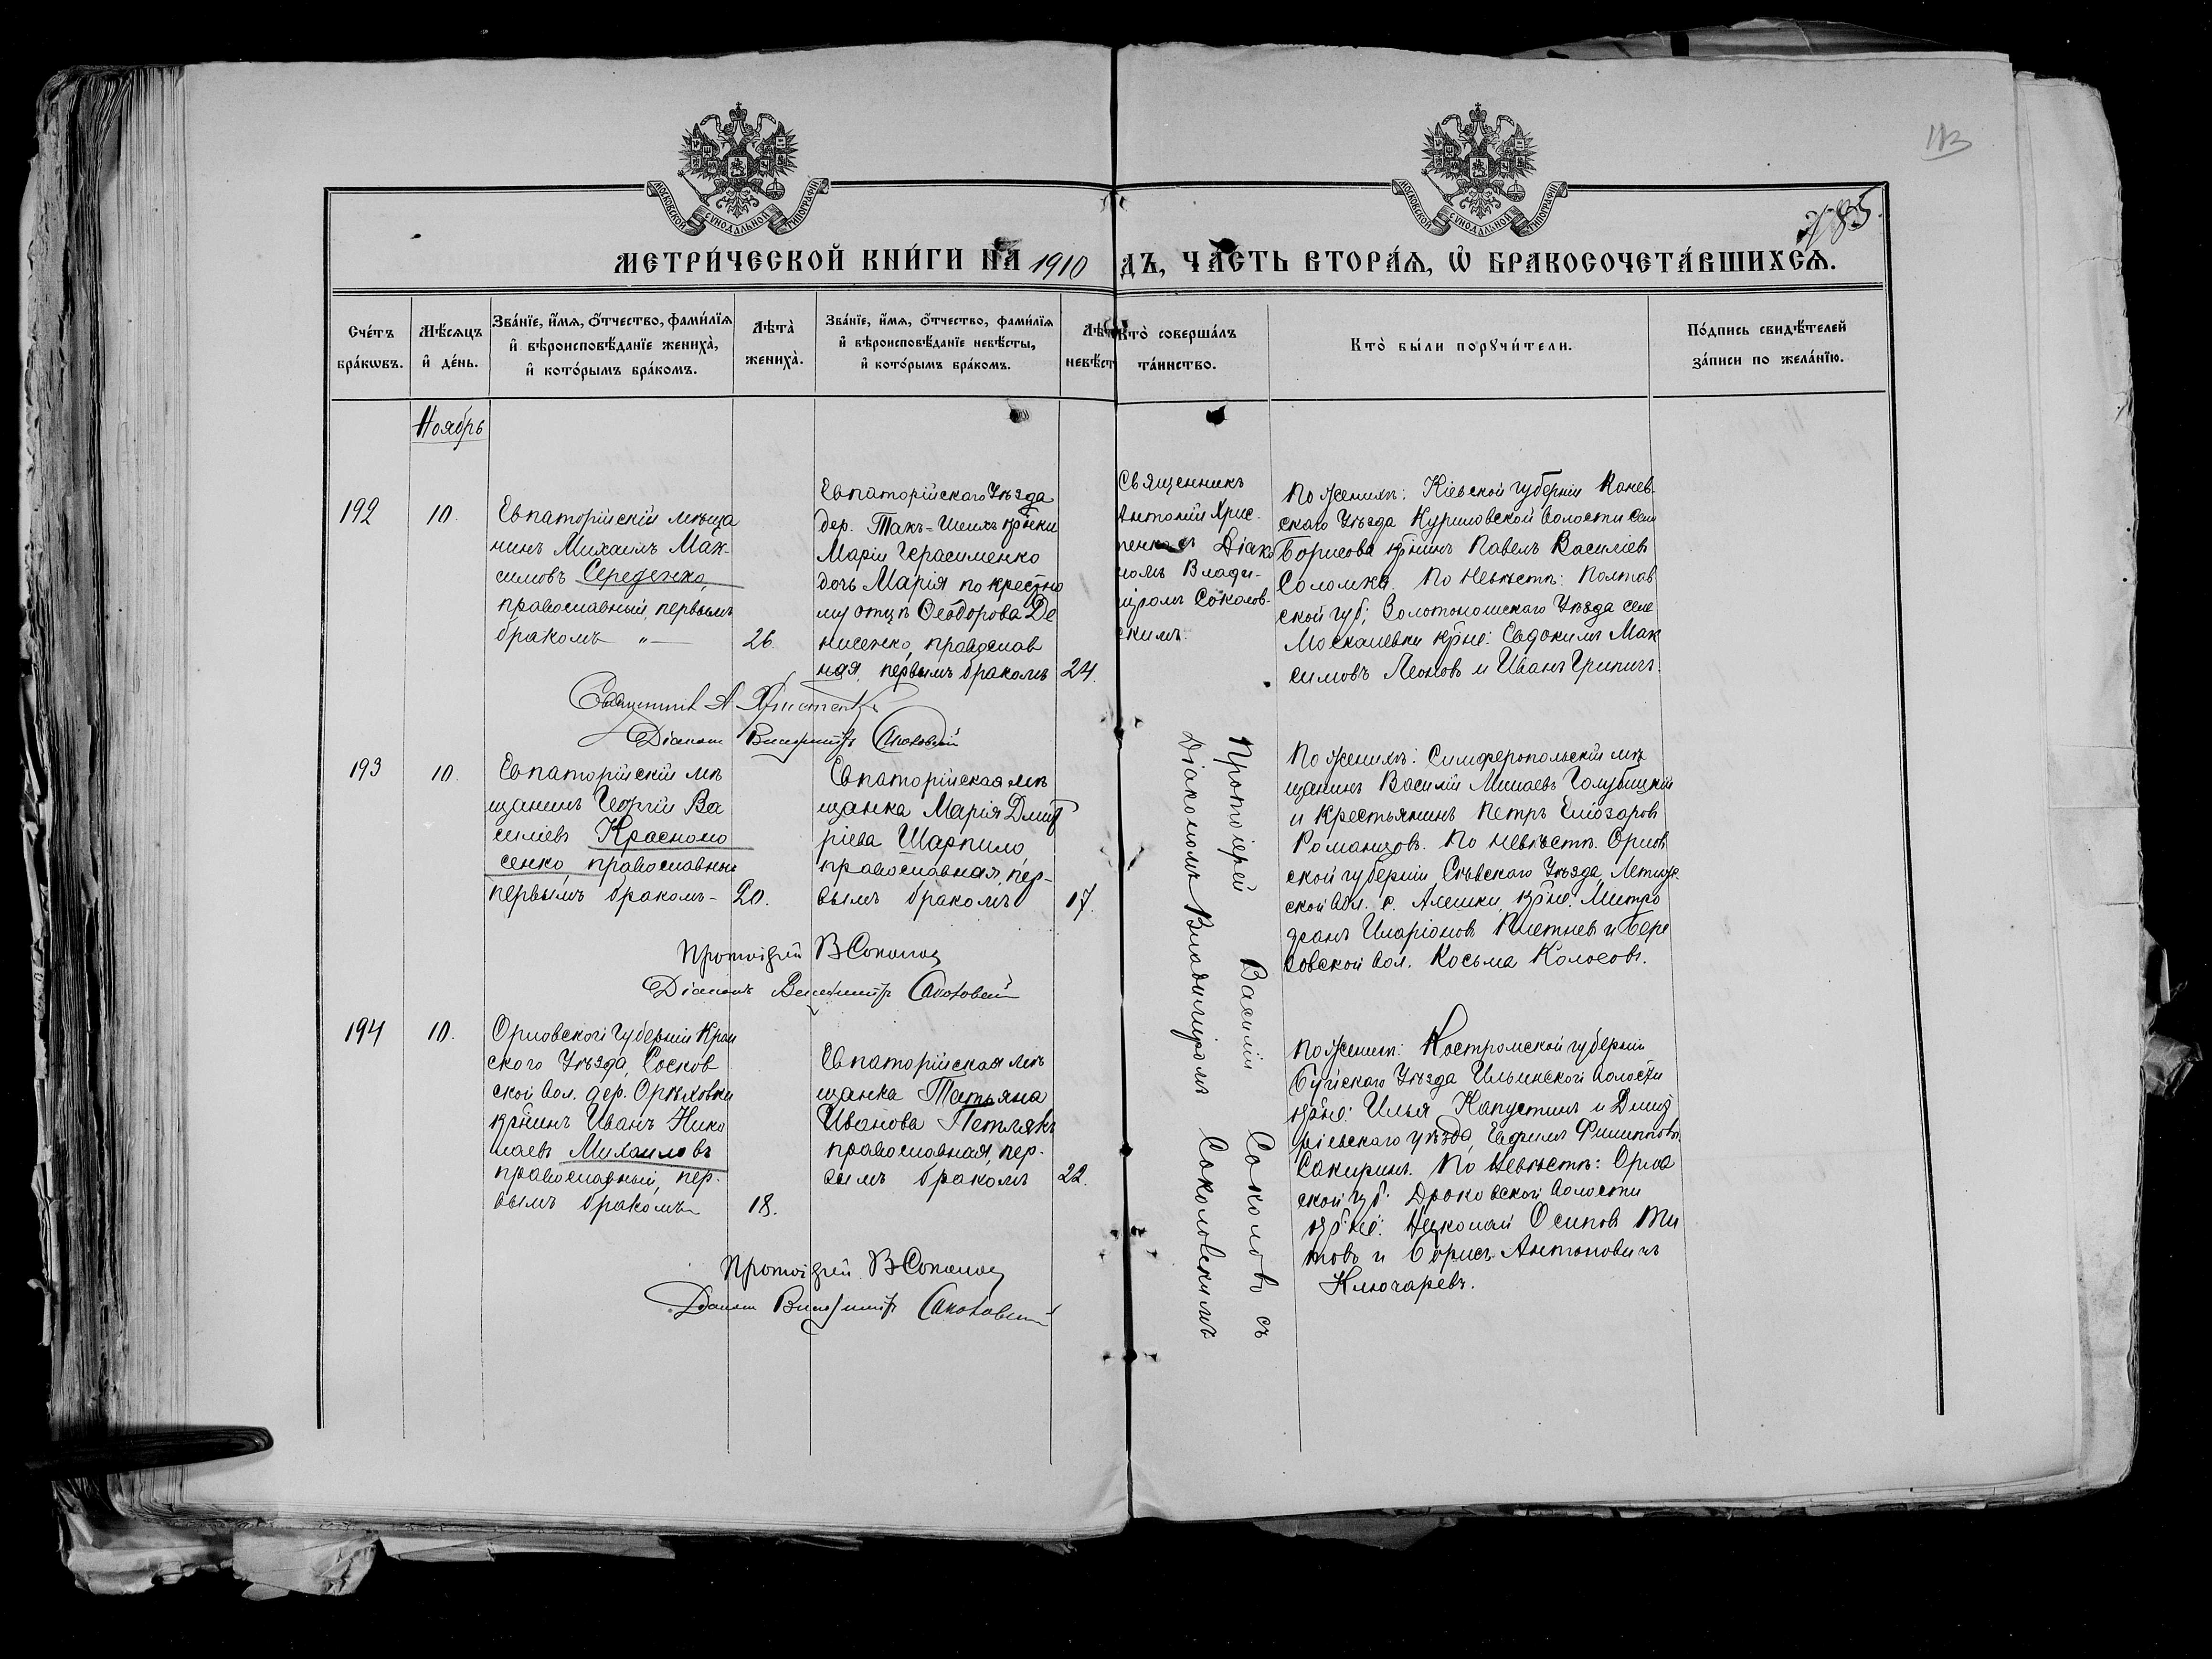 113
785.
МОСКОВСКОЙ СУНОДАЛЬНОЙ ТИПОГРАФІИ
МОСКОВСКОЙ СУНОДАЛЬНОЙ ТИПОГРАФІИ
МЕТРИ́ЧЕСКОЙ КНИ́ГИ НА 1910 ДЪ, ЧА́СТЬ ВТОРА́Я, Ѡ БРАКОСОЧЕТА́ВШИХСЯ.
Сче́тъ
бра́кѡвъ.
Мѣ́сяцъ
и҆ де́нь.
Зва́нїе, и҆́мя, ѻ҆́тчество, фами́лїя
и҆ вѣроисповѣ́данїе жениха̀,
и҆ кото́рымъ бра́комъ.
Лѣта̀
жениха̀.
Зва́нїе, и҆́мя, ѻ҆́тчество, фами́лїя
и҆ вѣроисповѣ́данїе невѣ́сты,
и҆ кото́рымъ бра́комъ.
Лѣт
невѣ́ст
Кто̀ соверша́лъ
та́инство.
Кто̀ бы́ли порꙋчи́тели.
По́дпись свидѣ́телей
за́писи по жела́нїю.
Ноябрь
192
10.
Евпаторійскій мѣща
нинъ Михаилъ Мак-
симовъ Середенко,
православный, первымъ
бракомъ „—
26.
Евпаторійскаго Уѣзда
дер. Такъ-Шеихъ кр̃нки
Маріи Герасименко
дочь Марія по крестно
му отцу Ѳеодорова Де
нисенко, православ
ная, первымъ бракомъ
24.
Священникъ
Антоній Хрис-
тенко съ Діако
номъ Влади-
міромъ Соколов-
скимъ.
По женихѣ: Кіевской губерніи Канев-
скаго Уѣзда Куриловской волости села
Борисова кр̃нинъ Павелъ Василіевъ
Соломка. По невѣстѣ: Полтав
ской губ; Золотоношскаго Уѣзда села
Москалевки кр̃не: Евдокимъ Мак
симовъ Леоновъ и Иванъ
Священникъ А. Христенко
Діаконъ Владиміръ Соколовскій
193
10.
Евпаторійскій мѣ
щанинъ Георгій Ва
силіевъ Красноно
сенко, православный
первымъ бракомъ-
20.
Евпаторійская мѣ
щанка Марія Дмит
ріева Шарпило,
православная, пер-
вымъ бракомъ
17.
Протоіерей Василій Соколовъ съ
Діакономъ Владиміромъ Соколовскимъ
По женихѣ: Симферопольскій мѣ
щанинъ Василій Минаевъ Голубицкій
и Крестьянинъ Петръ Еліозаровъ
Романцовъ. По невѣстѣ: Орлов
ской губерніи Сѣвскаго Уѣзда,
ской вол. с. Алешки, кр̃не: Митро
фанъ Иларіоновъ Плетневъ и Бере
зовской вол. Косьма Колосовъ.
Протоіерей В Соколов
Діаконъ Владиміръ Соколовскій
194
10.
Орловской губерніи Кром
ского Уѣзда, Сосков
ской вол. дер. Орѣховки
кр̃нинъ Иванъ Нико
лаевъ Михаиловъ
православный, пер-
вымъ бракомъ
18.
Евпаторійская мѣ
щанка Татьяна
Иванова Петлякъ
православная, пер-
вымъ бракомъ
22.
По женихѣ: Костромской губерніи
Буйскаго Уѣзда Ильинской волости
кр̃не: Илья Капустинъ и Дмит
ріевскаго уѣзда, Ефремъ Филипповъ
Сакиринъ. По Невѣстѣ: Орлов
ской губ: Дроковской волости
кр̃не: Николай Осиповъ Ти
товъ и Борисъ Антоновичъ
Ключаревъ.
Протоіерей В Соколов
Діаконъ Владиміръ Соколовскій